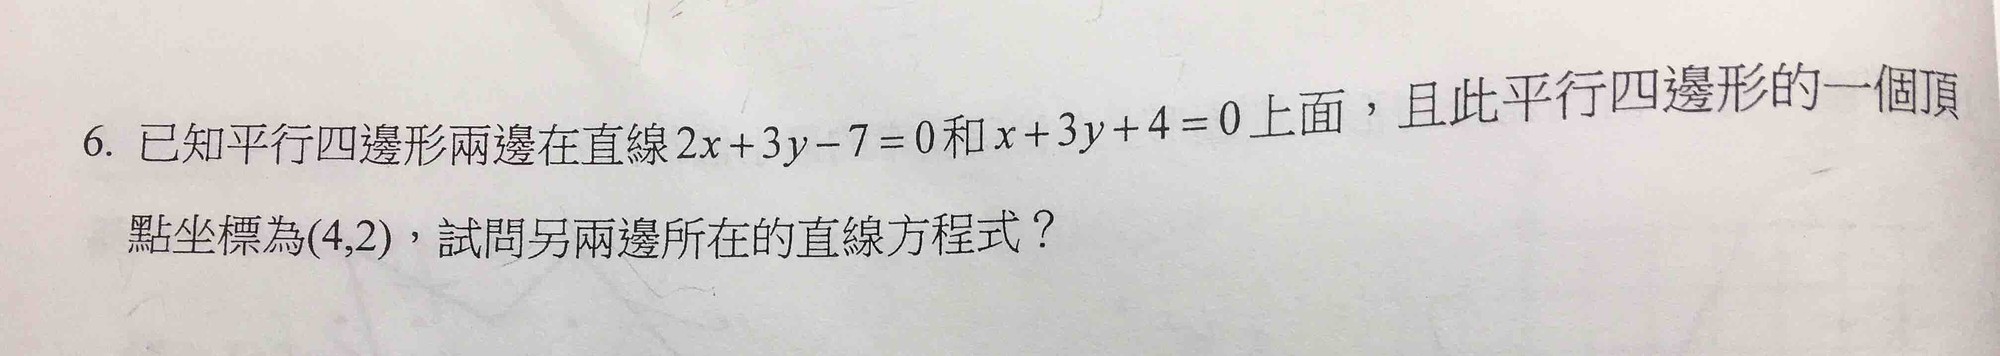 6. 已知平行四邊形兩邊在直線2x+3y−7=0和x+3y+4=0上面，且此平行四邊形的一個頂
點坐標為(4,2)，試問另兩邊所在的直線方程式？